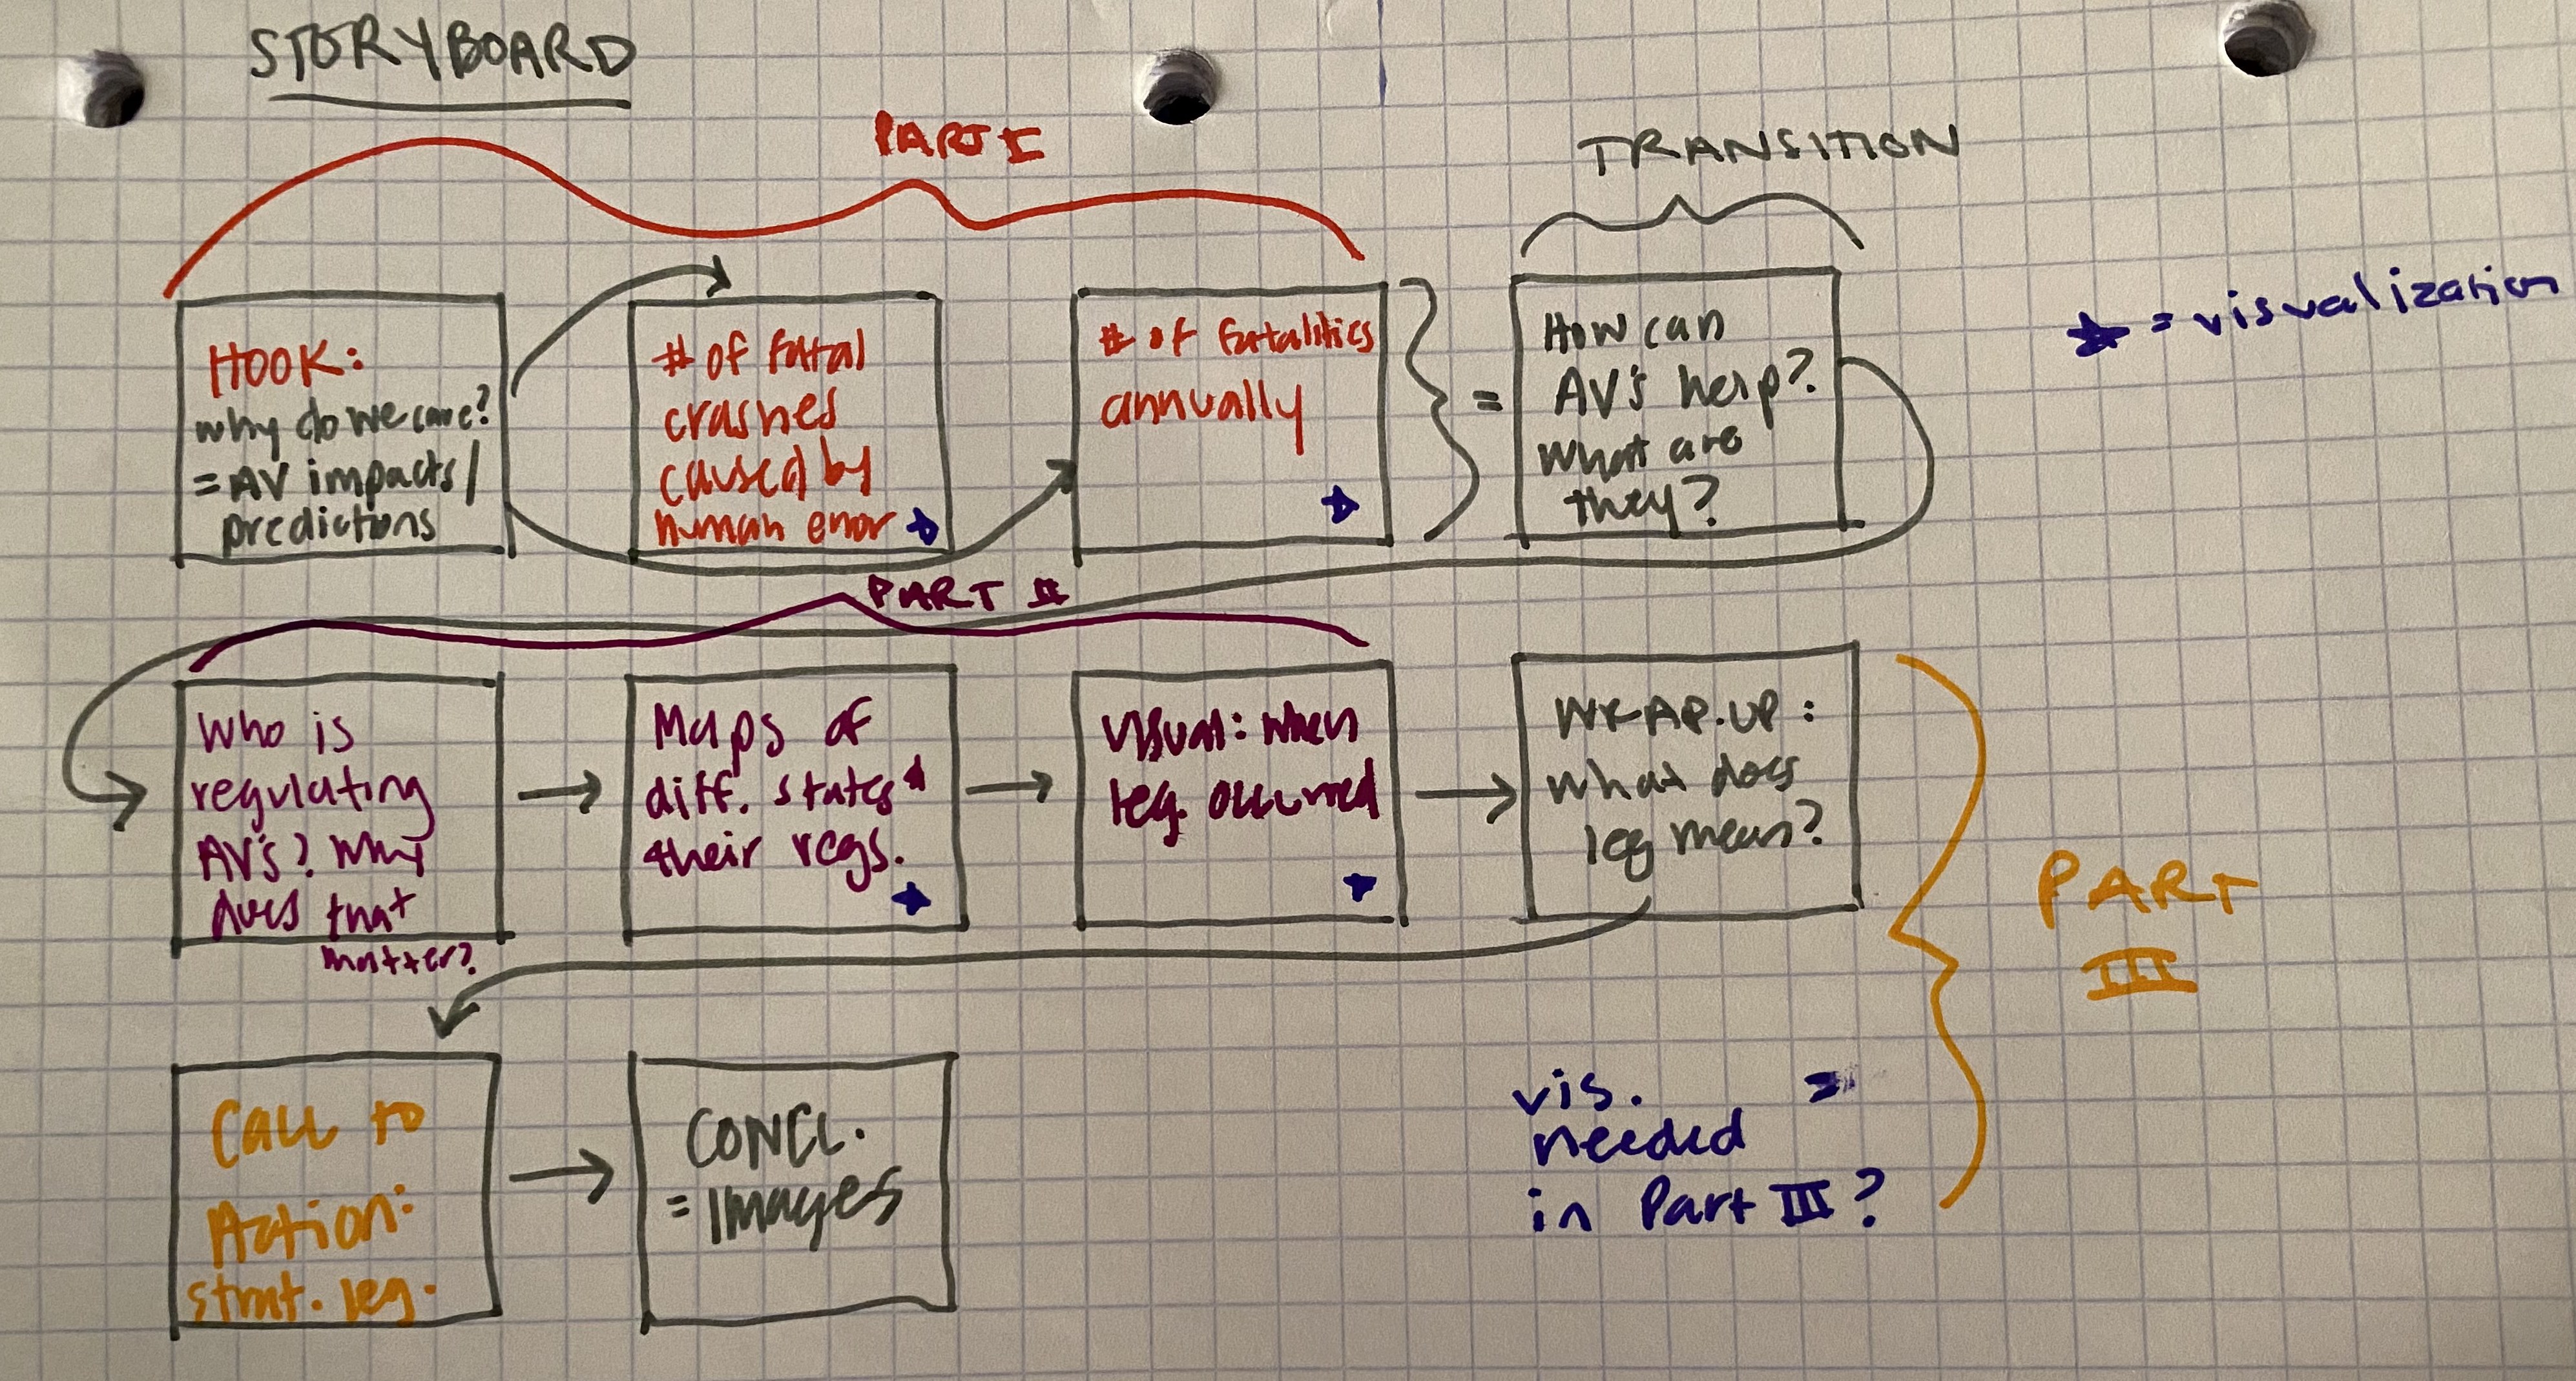 STORYBOARD
PART I
TRANSITION
HOOK:
why do we care?
= AV impacts /
predictions
# of fatal
crashes
caused by
human error
# of fatalities
annually
=
How can
AV's help?
What are
they?
= visualization
PART II
Who is
regulating
AV's? Why
does that
matter?
Maps of
diff. states &
their regs.
Visual: when
leg. occurred
WRAP-UP:
what does
leg mean?
PART
III
Call to
Action:
strat. leg.
CONCL.
= Images
vis.
needed
in Part III?